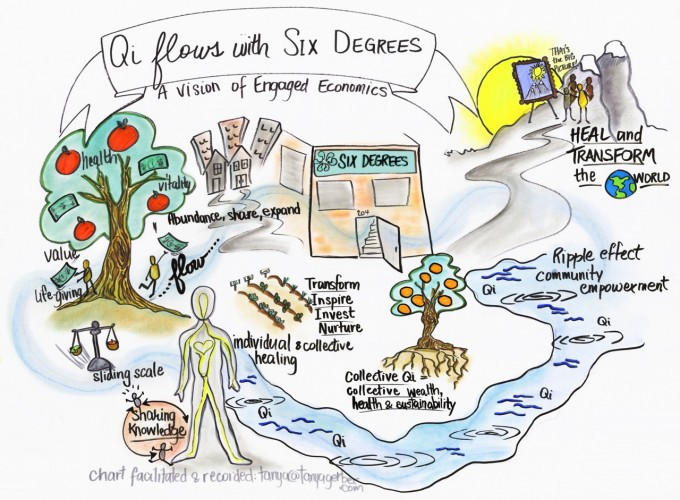 Qi flows with SIX DEGREES
A vision of Engaged Economics
THAT'S
the BIG
PICTURE!
HEAL and
TRANSFORM
the WORLD
health
vitality
value
life-giving
flow
Abundance, share, expand
SIX DEGREES
204
Transform
Inspire
Invest
Nurture
individual & collective
healing
sliding scale
Sharing
Knowledge
Collective Qi =
collective wealth,
health & sustainability
Ripple effect
community
empowerment
Qi
Qi
Qi
Qi
Qi
Qi
chart facilitated & recorded: